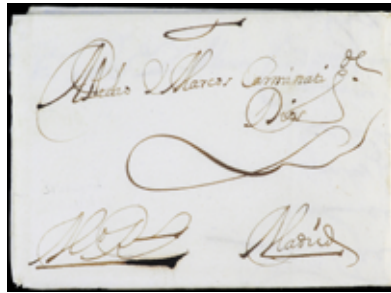 A Pedro D Marcos Carminati gde
Dios
Madrid